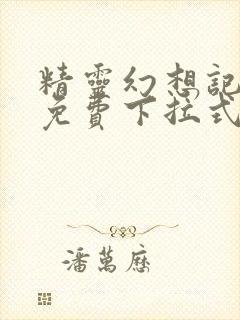 精靈幻想記
免費下拉式
潘萬歷